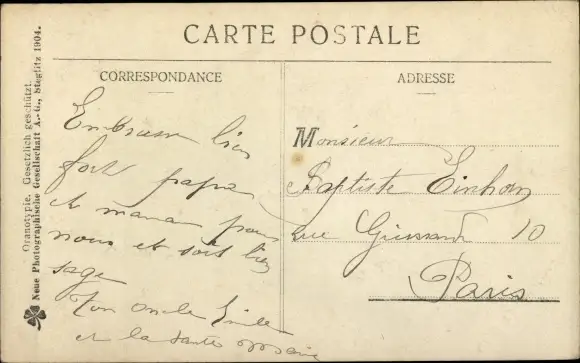 CARTE POSTALE
CORRESPONDANCE
Embrasse bien
fort papa
et maman pour
nous et soit bien
sage
Ton oncle Emile
et la tante
ADRESSE
Monsieur
Baptiste Einhorn
rue 10
Paris
Oranotypie. Gesetzlich geschützt.
Neue Photographische Gesellschaft A.-G., Steglitz 1904.